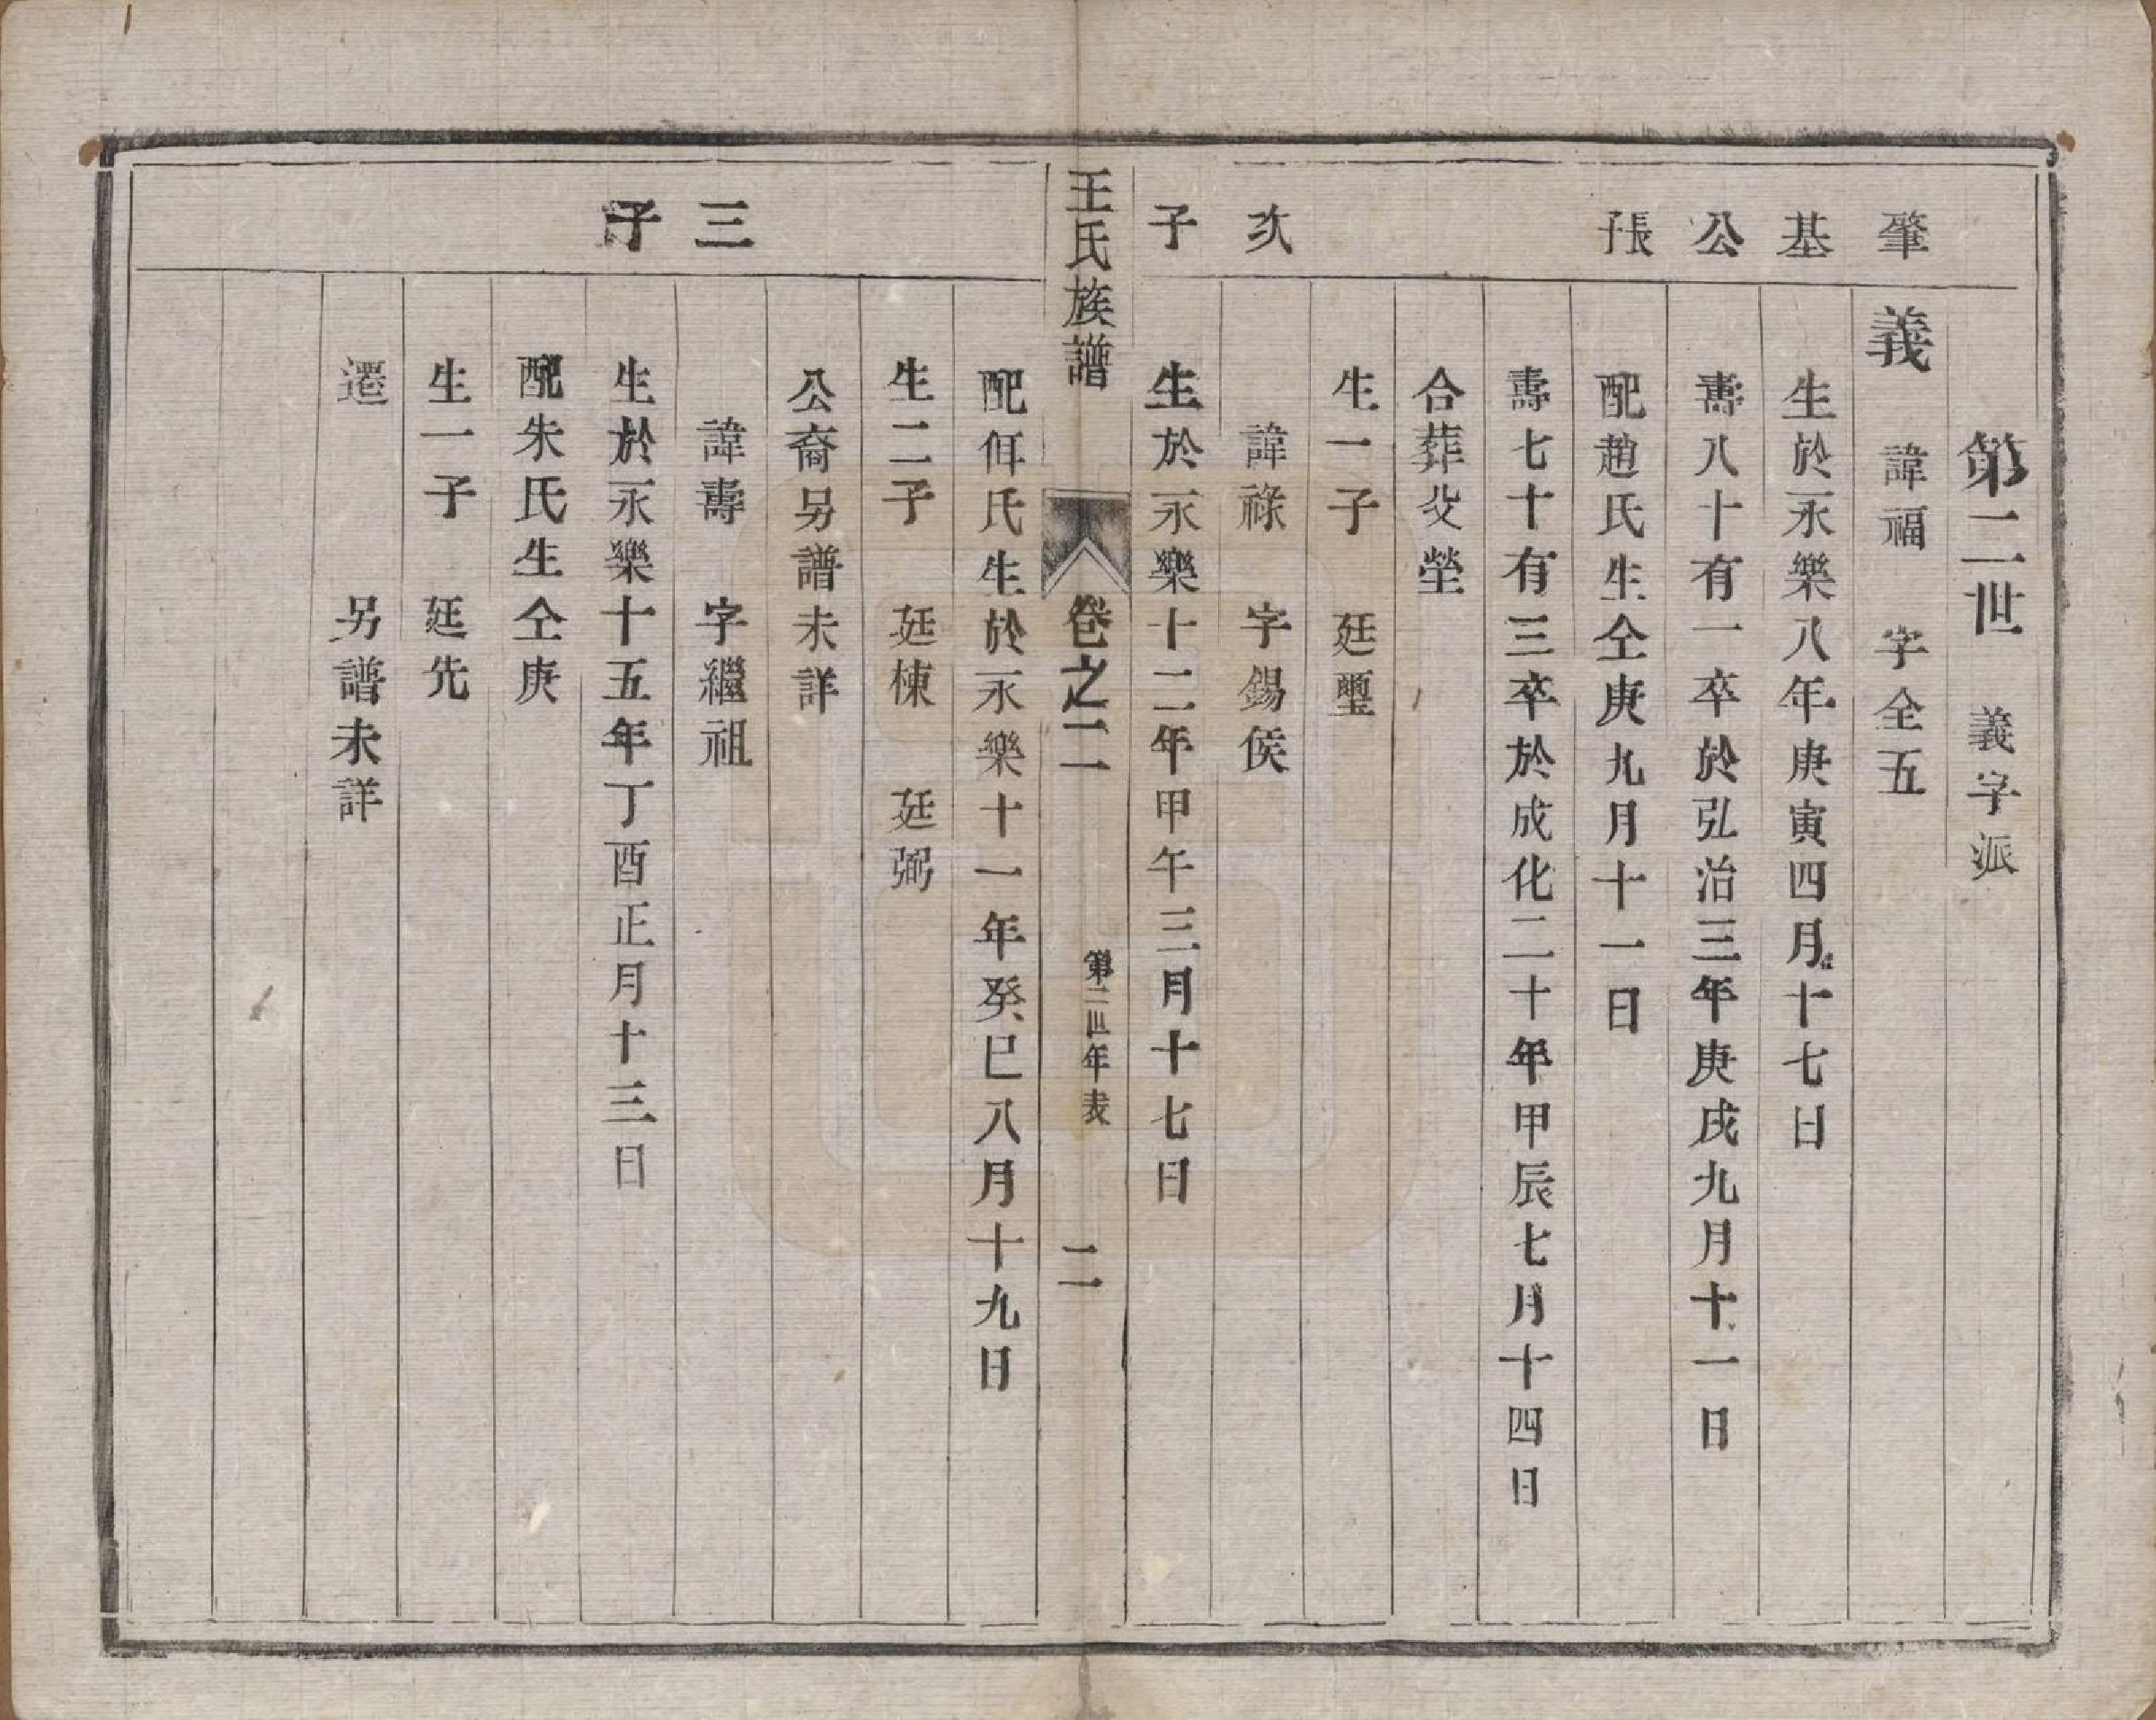 第二世 義字派
肇基公長子
義 諱福 字全五
生於永樂八年庚寅四月十七日
壽八十有一卒於弘治三年庚戌九月十一日
配趙氏生仝庚九月十一日
壽七十有三卒於成化二十年甲辰七月十四日
合葬父塋
生一子 廷璽
次子
諱祿 字錫侯
生於永樂十二年甲午三月十七日
王氏族譜 卷之二 第二世年表 二
配佴氏生於永樂十一年癸巳八月十九日
生二子 廷棟 廷弼
公裔另譜未詳
三子
諱壽 字繼祖
生於永樂十五年丁酉正月十三日
配朱氏生仝庚
生一子 廷先
遷 另譜未詳